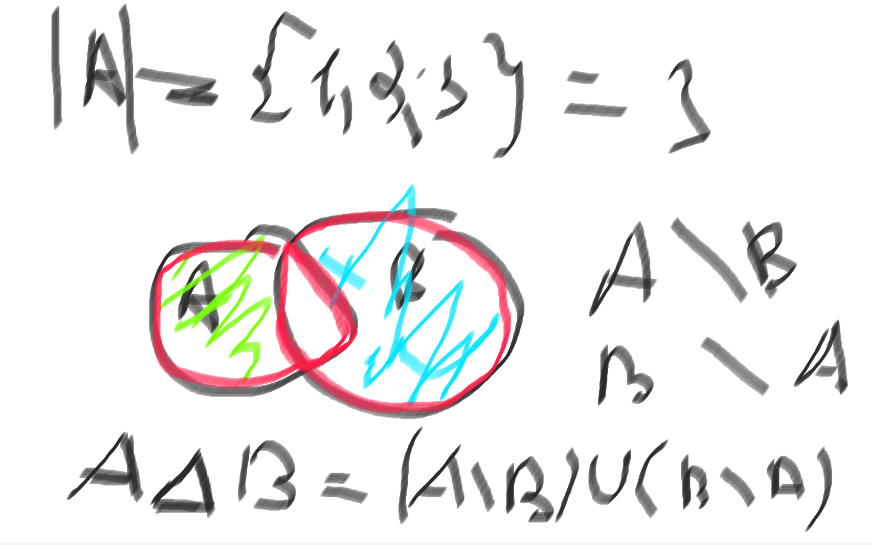 |A| = {1, 2, 3} = 3
A B
A \ B
B \ A
A Δ B = (A \ B) ∪ (B \ A)